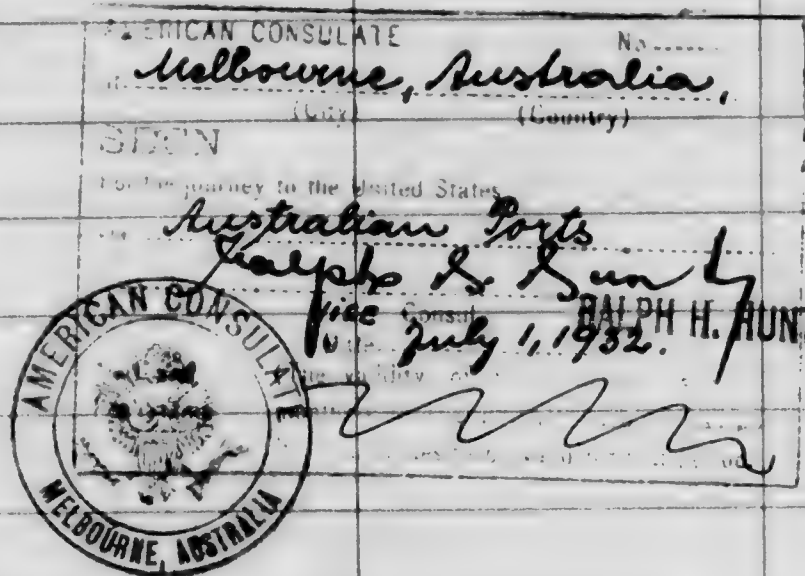 AMERICAN CONSULATE No.......
Melbourne, Australia,
(City) (Country)
SEEN
For the journey to the United States
Australian Ports
Ralph H. Hunt
Vice Consul RALPH H. HUN
July 1, 1932.
validity
AMERICAN CONSULATE
MELBOURNE, AUSTRALIA